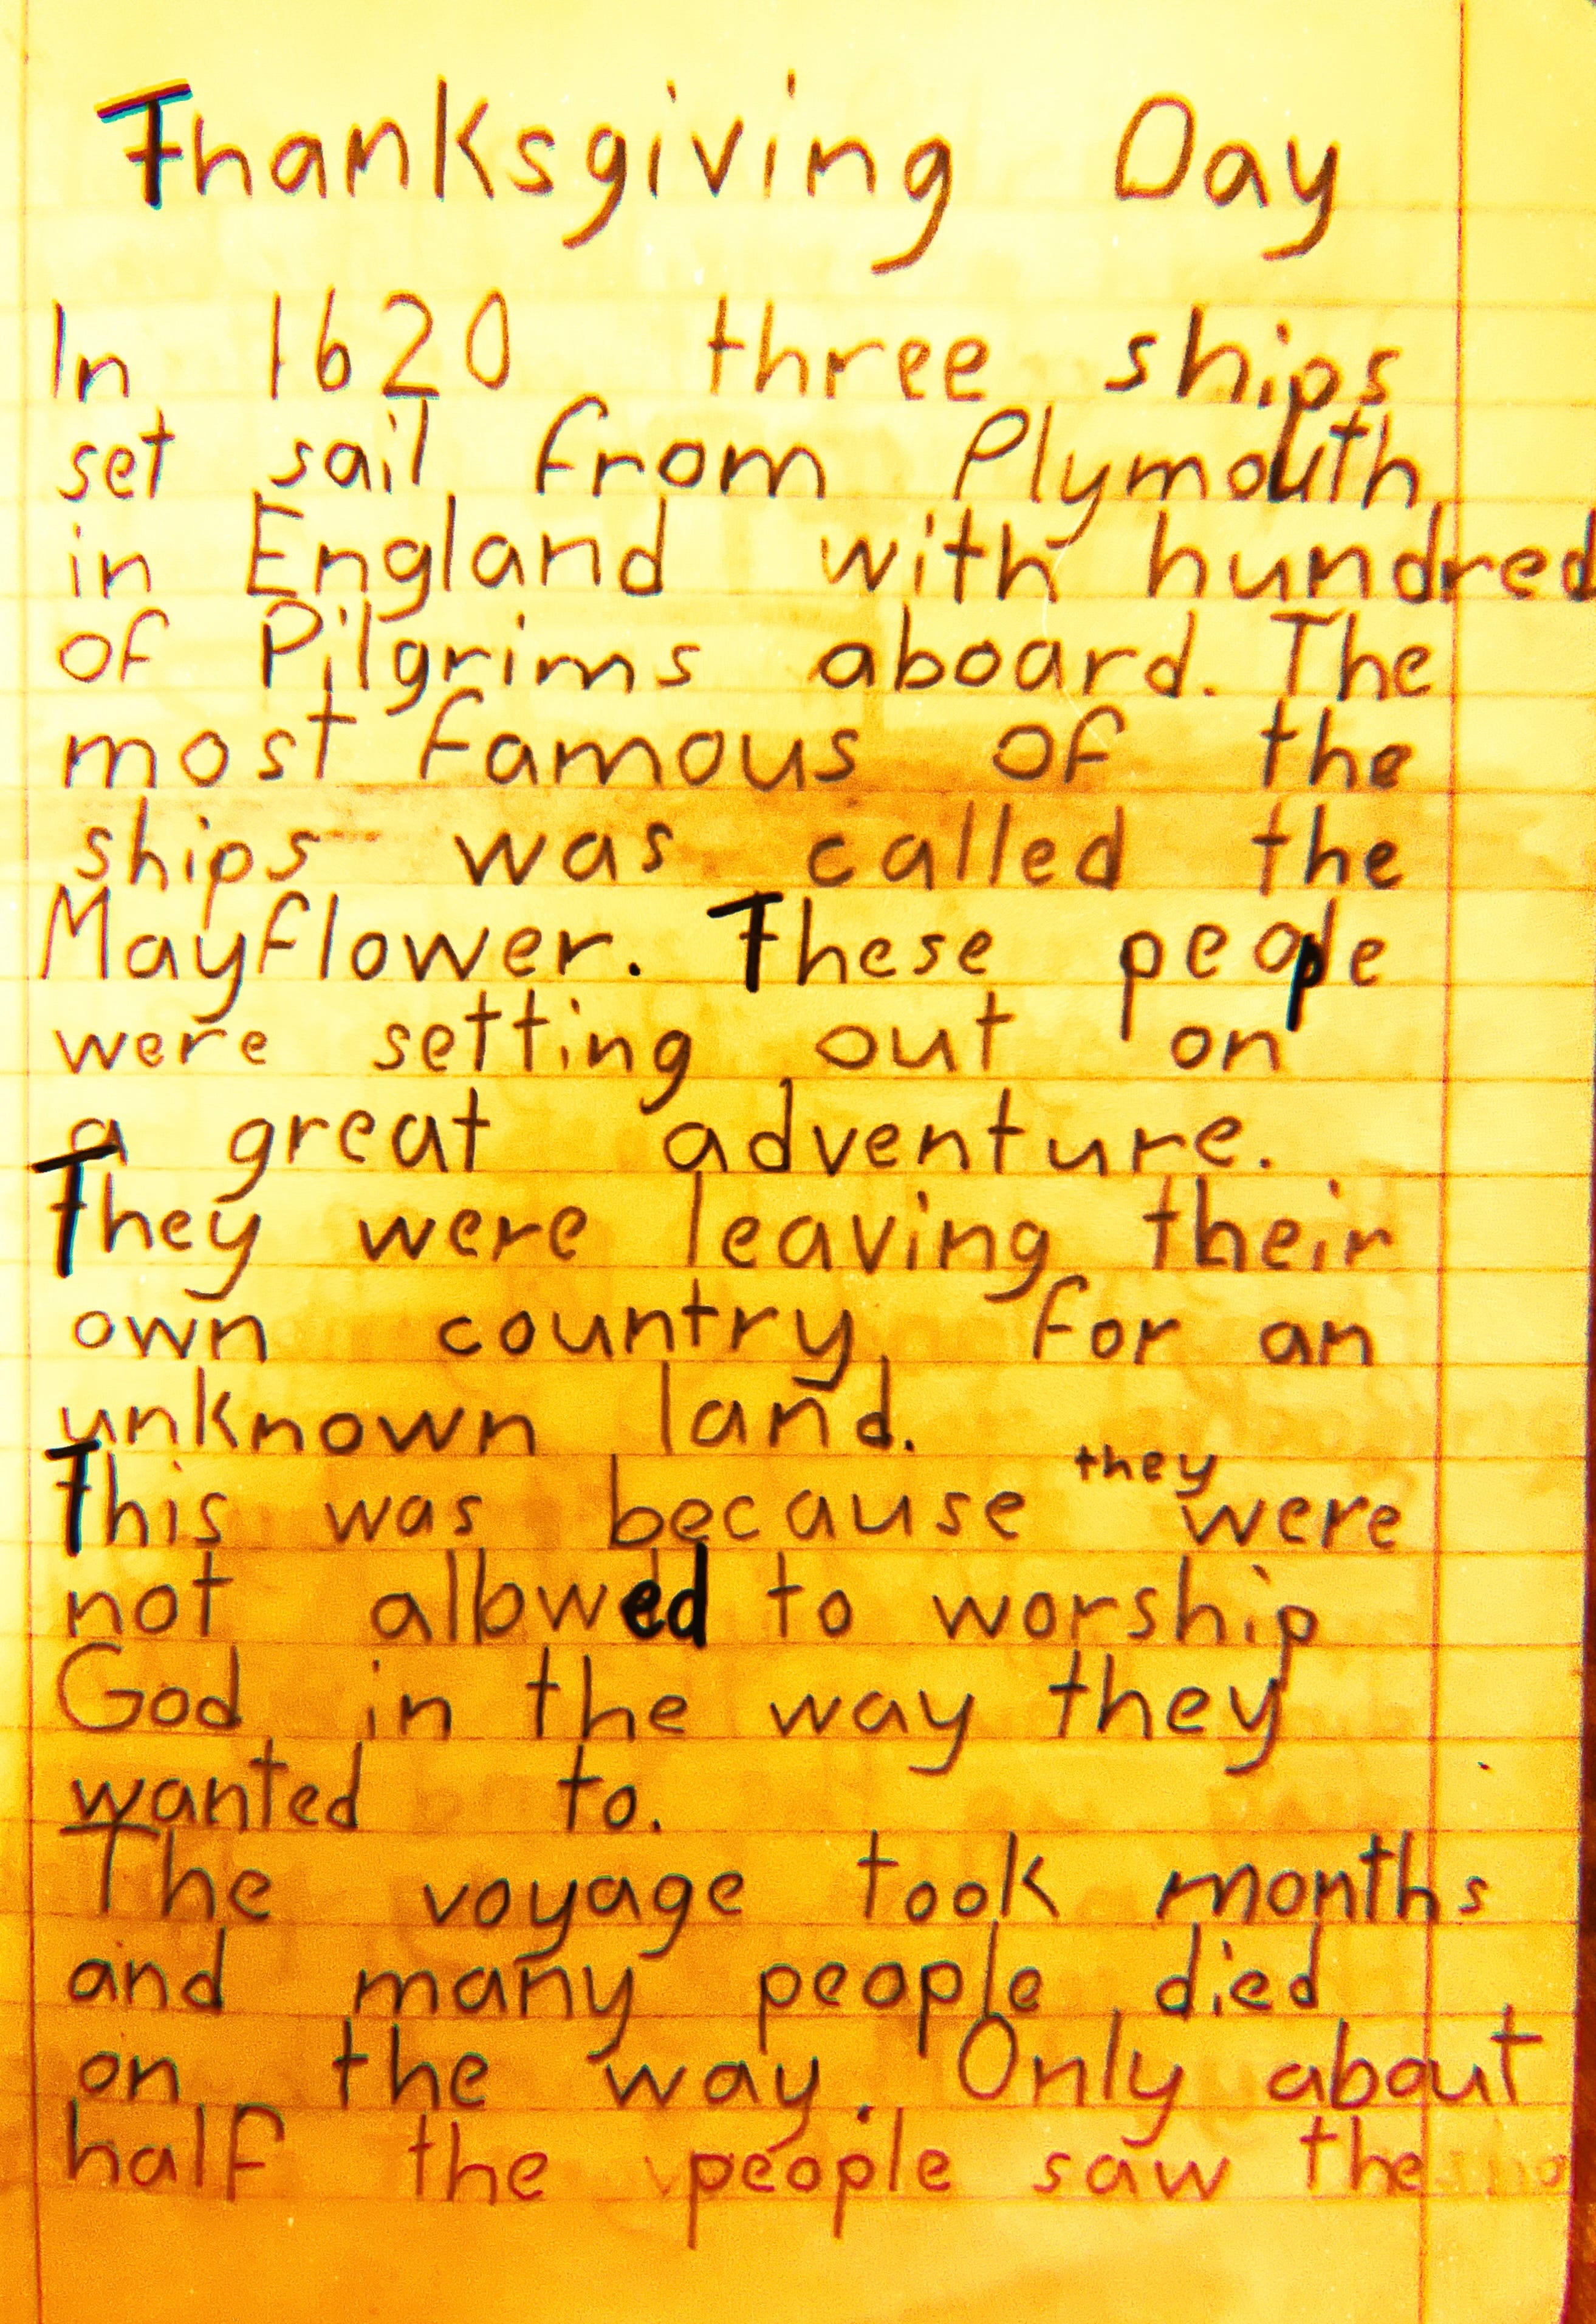 Thanksgiving Day
In 1620 three ships
set sail from Plymouth
in England with hundred
of Pilgrims aboard. The
most famous of the
ships was called the
Mayflower. These people
were setting out on
a great adventure.
They were leaving their
own country for an
unknown land.
This was because they were
not allowed to worship
God in the way they
wanted to.
The voyage took months
and many people died
on the way. Only about
half the people saw the